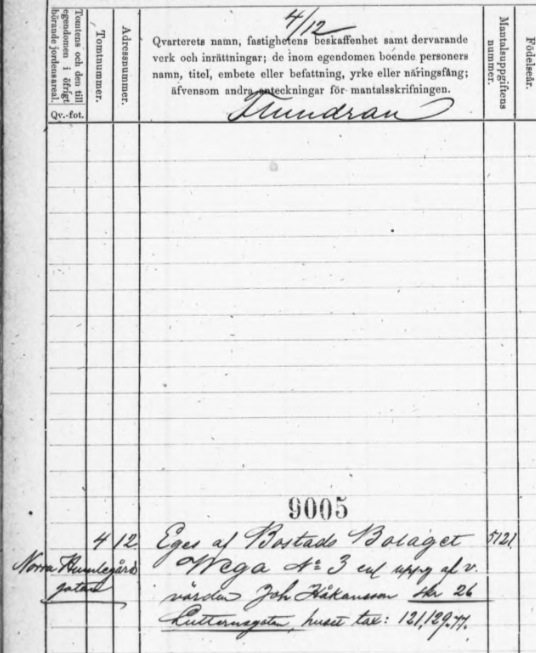 4/12
Tomtens och den till egendomen i öfrigt hörande jordens areal.
Qv.-fot.
Tomtnummer.
Adressnummer.
Qvarterets namn, fastighetens beskaffenhet samt dervarande
verk och inrättningar; de inom egendomen boende personers
namn, titel, embete eller befattning, yrke eller näringsfång;
äfvensom andra anteckningar för mantalsskrifningen.
Mantalsuppgiftens nummer.
Födelseår.
Flundran
9005
4 12. Eges af Bostads Bolaget 5121
Norra Humlegårds Wega № 3 enl uppg af v.
gatan värden Joh Håkansson 26
Lutternsgatan, huset tax: 121,129.77.